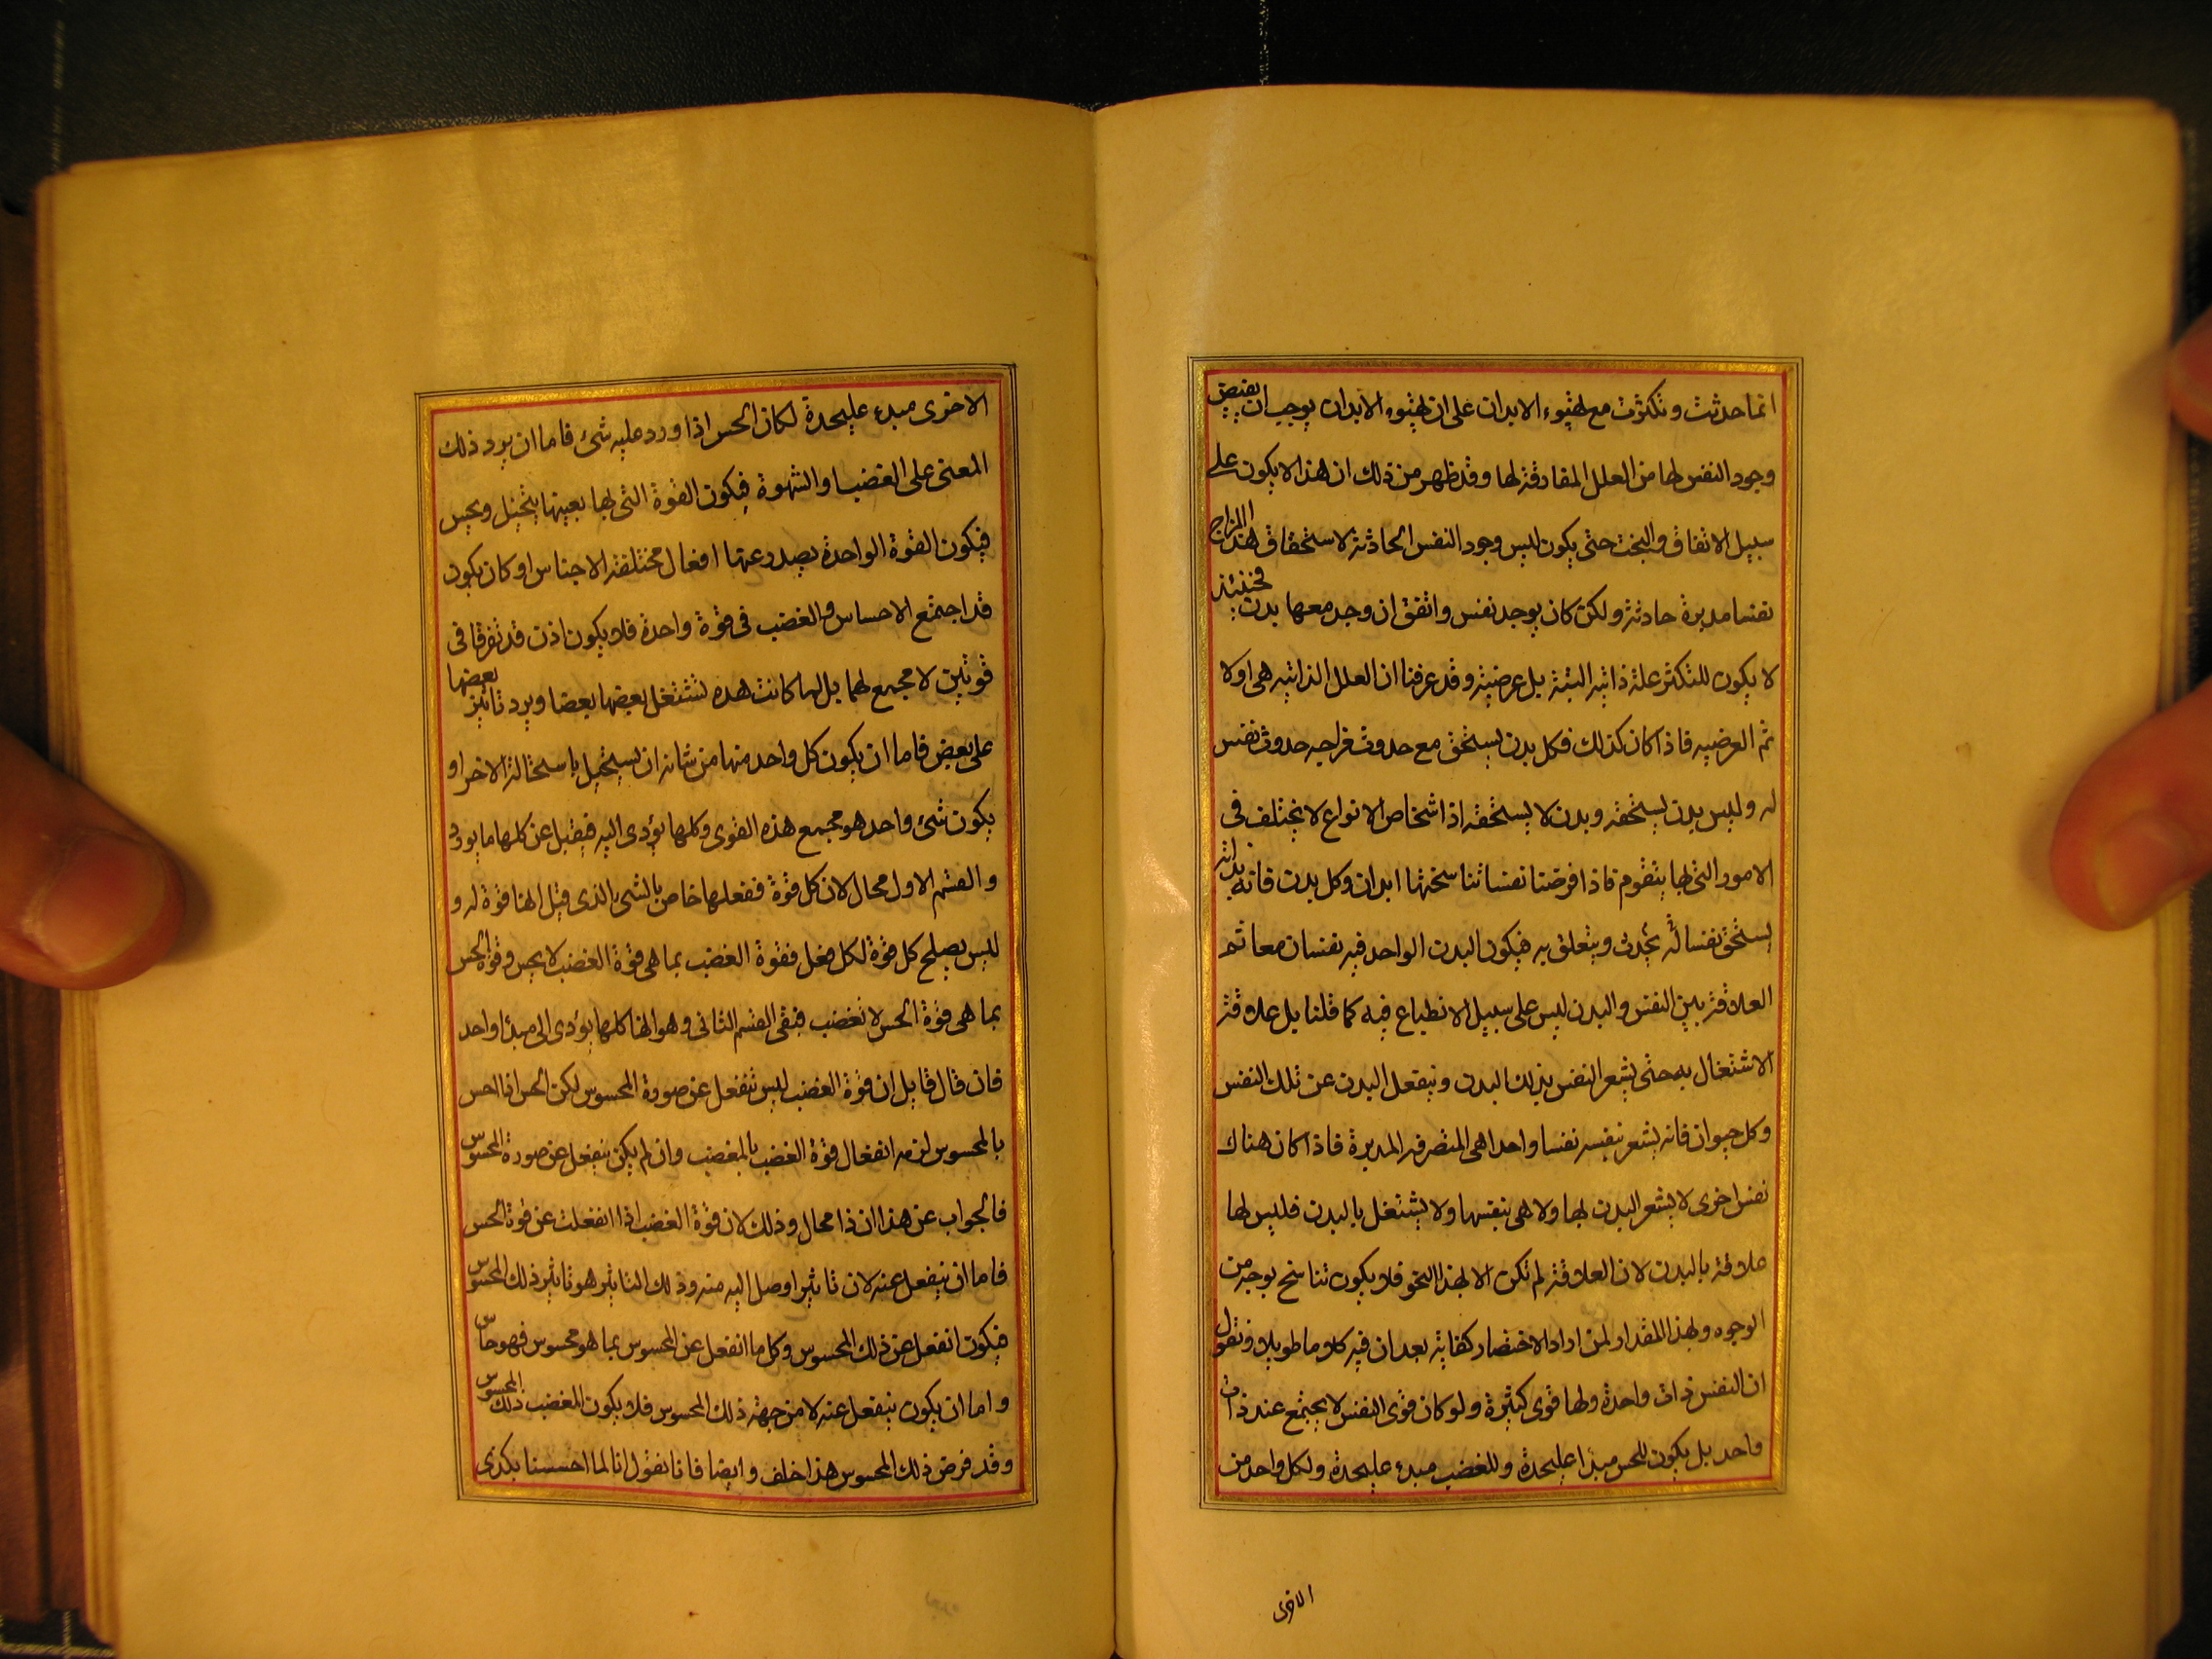 انما حدثت وتكثرت مع تهيوء الابدان على ان تهيوء الابدان يوجب ان يفيض
وجود النفس لها من العلل المفارقة لها وقد ظهر من ذلك ان هذا لا يكون على
سبيل الاتفاق والبخت حتى يكون ليس وجود النفس الحادثة لاستحقاق هذا المزاج
نفسا مدبرة حادثة ولكن كان يوجد نفس واتفق ان وجد معها بدن فحينئذ
لا يكون للتكثر علة ذاتيه البتة بل عرضية وقد عرفنا ان العلل الذاتيه هى اولا
ثم العرضيه فاذا كان كذلك فكل بدن يستحق مع حدوث مزاجه حدوث نفس
له وليس بدن يستحقه وبدن لا يستحقه اذ اشخاص الانواع لا يختلف فى
الامور التى بها يتقوم فاذا فرضنا نفسا تناسختها ابدان وكل بدن فانه بذاته
يستحق نفسا له يحدث ويتعلق به فيكون البدن الواحد فيه نفسان معا ثم
العلاقة بين النفس والبدن ليس على سبيل الانطباع فيه كما قلنا بل علاقة
الاشتغال به حتى يشعر النفس بذلك البدن وينفعل البدن عن تلك النفس
وكل حيوان فانه يشعر نفسه نفسا واحدا هى المتصرفه المدبرة فاذا كان هناك
نفس اخرى لا يشعر البدن بها ولا هى بنفسها ولا يشتغل بالبدن فليس لها
علاقة بالبدن لان العلاقة لم تكن الا بهذا النحو فلا يكون تناسخ بوجه من
الوجوه وبهذا المقدار لمن اراد الاختصار كفاية بعد ان فيه كلاما طويلا ونقول
ان النفس ذات واحدة ولها قوى كثيرة ولو كان قوى النفس لا يجتمع عند ذات
واحد بل يكون للحس مبدا عليحدة وللغضب مبدء عليحدة ولكل واحد من
الاخرى
الاخرى مبدء عليحدة لكان الحس اذا ورد عليه شئ فاما ان يرد ذلك
المعنى على الغضب او الشهوة فيكون القوة التى بها بعينها يتخيل ويحس
فيكون القوة الواحدة يصدر عنها افعال مختلفة الاجناس او كان يكون
قد اجتمع الاحساس والغضب فى قوة واحدة فلا يكون اذن قد تفرقا فى
قوتين لا مجمع لهما بل لما كانت هذه تشتغل بعضها بعضا ويرد تاثير بعضها
على بعض فاما ان يكون كل واحد منها من شانه ان يستحيل باستحالة الاخر او
يكون شئ واحد هو مجمع هذه القوى وكلها يؤدى اليه فيقبل عن كلها ما يورد
والقسم الاول محال لان كل قوة ففعلها خاص بالشى الذى قيل انها قوة له و
ليس يصلح كل قوة لكل فعل فقوة الغضب بما هى قوة الغضب لا يحس وقوة الحس
بما هى قوة الحس لا تغضب فبقى القسم الثانى وهو انها كلها يؤدى الى مبدا واحد
فان قال قايل ان قوة الغضب ليس تنفعل عن صورة المحسوس لكن الحس اذا احس
بالمحسوس لزمه انفعال قوة الغضب بالمغضب وان لم يكن ينفعل عن صورة المحسوس
فالجواب عن هذا ان ذا محال وذلك لان قوة الغضب اذا انفعلت عن قوة الحس
فاما ان ينفعل عنه لان تاثيرا وصل اليه منه وذلك التاثير هو تاثير ذلك المحسوس
فيكون انفعل عن ذلك المحسوس وكل ما انفعل عن المحسوس بما هو محسوس فهو حاس
واما ان يكون ينفعل عنه لا من جهة ذلك المحسوس فلا يكون الغضب ذلك المحسوس
وقد فرض ذلك المحسوس هذا خلف وايضا فانا نقول انا لما احسسنا بكذى